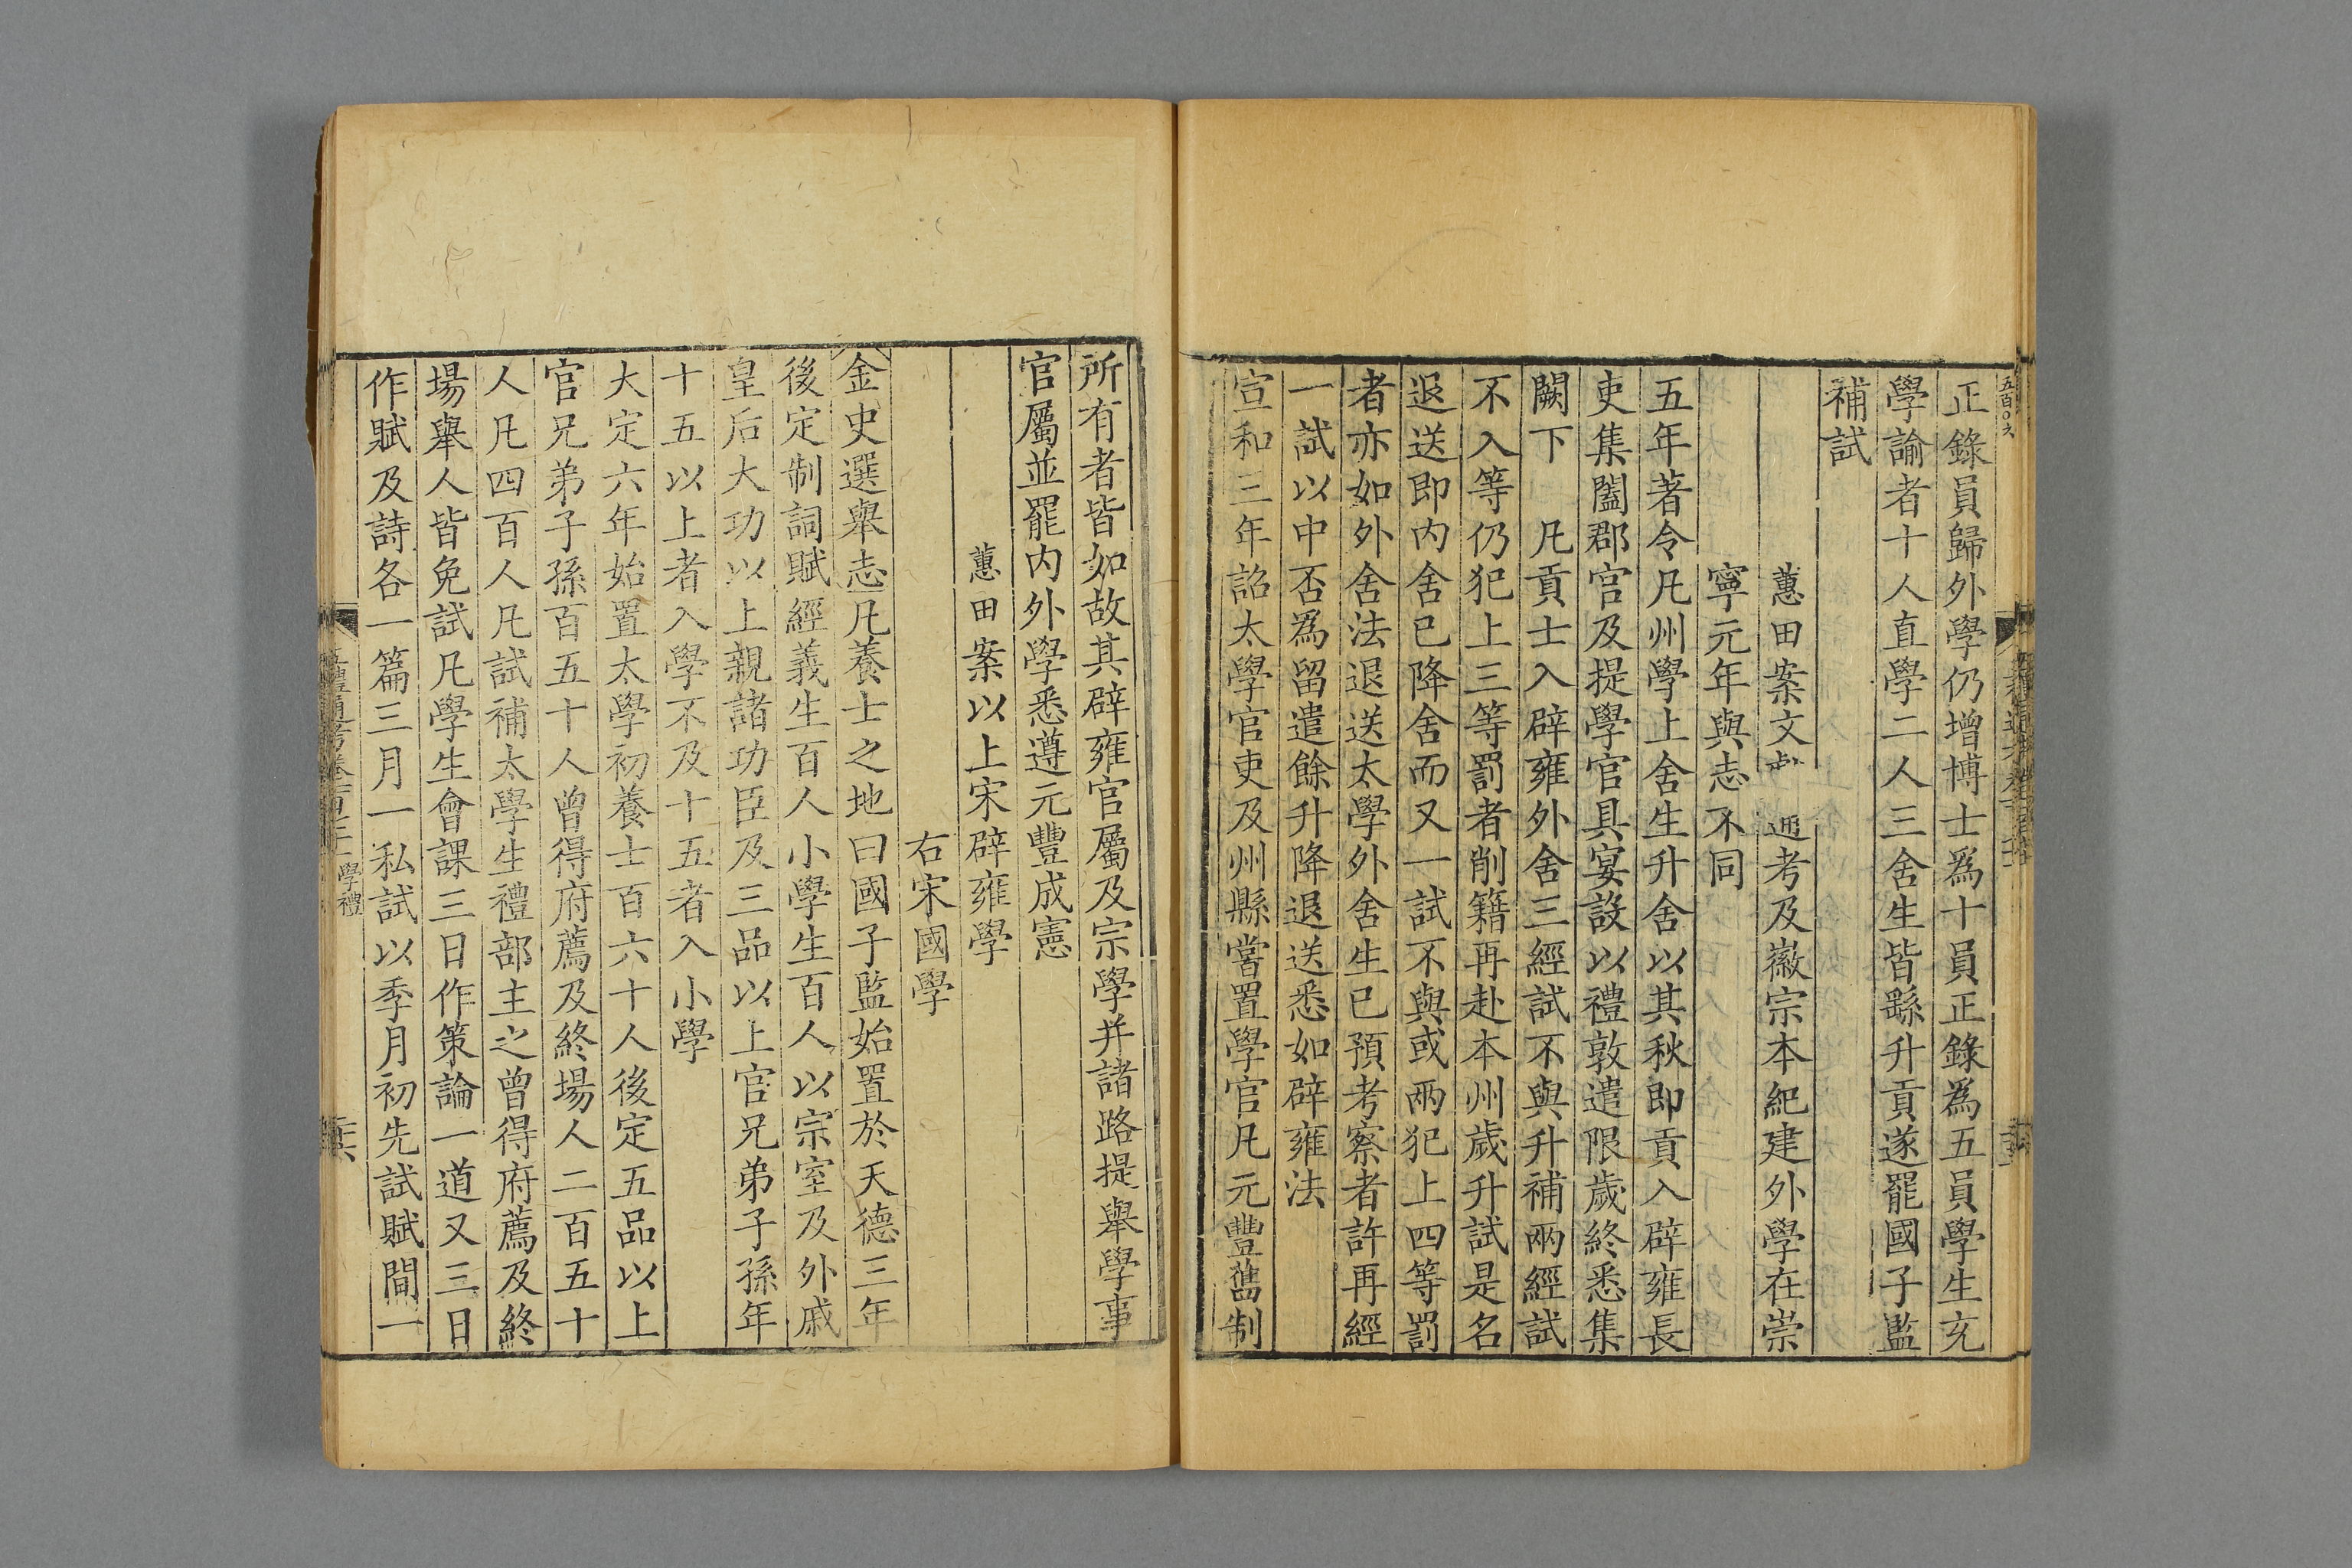 正錄員歸外學仍增博士為十員正錄為五員學生充
學諭者十人直學二人三舍生皆繇升貢遂罷國子監
補試
蕙田案文 通考及徽宗本紀建外學在崇
寧元年與志不同
五年著令凡州學上舍生升舍以其秋即貢入辟雍長
吏集闔郡官及提學官具宴設以禮敦遣限歲終悉集
闕下 凡貢士入辟雍外舍三經試不與升補兩經試
不入等仍犯上三等罰者削籍再赴本州歲升試是名
退送即內舍已降舍而又一試不與或兩犯上四等罰
者亦如外舍法退送太學外舍生已預考察者許再經
一試以中否為留遣餘升降退送悉如辟雍法
宣和三年詔太學官吏及州縣嘗置學官凡元豐舊制
所有者皆如故其辟雍官屬及宗學并諸路提舉學事
官屬並罷內外學悉遵元豐成憲
蕙田案以上宋辟雍學
右宋國學
金史選舉志凡養士之地曰國子監始置於天德三年
後定制詞賦經義生百人小學生百人以宗室及外戚
皇后大功以上親諸功臣及三品以上官兄弟子孫年
十五以上者入學不及十五者入小學
大定六年始置太學初養士百六十人後定五品以上
官兄弟子孫百五十人曾得府薦及終場人二百五十
人凡四百人凡試補太學生禮部主之曾得府薦及終
場舉人皆免試凡學生會課三日作策論一道又三日
作賦及詩各一篇三月一私試以季月初先試賦間一
學禮